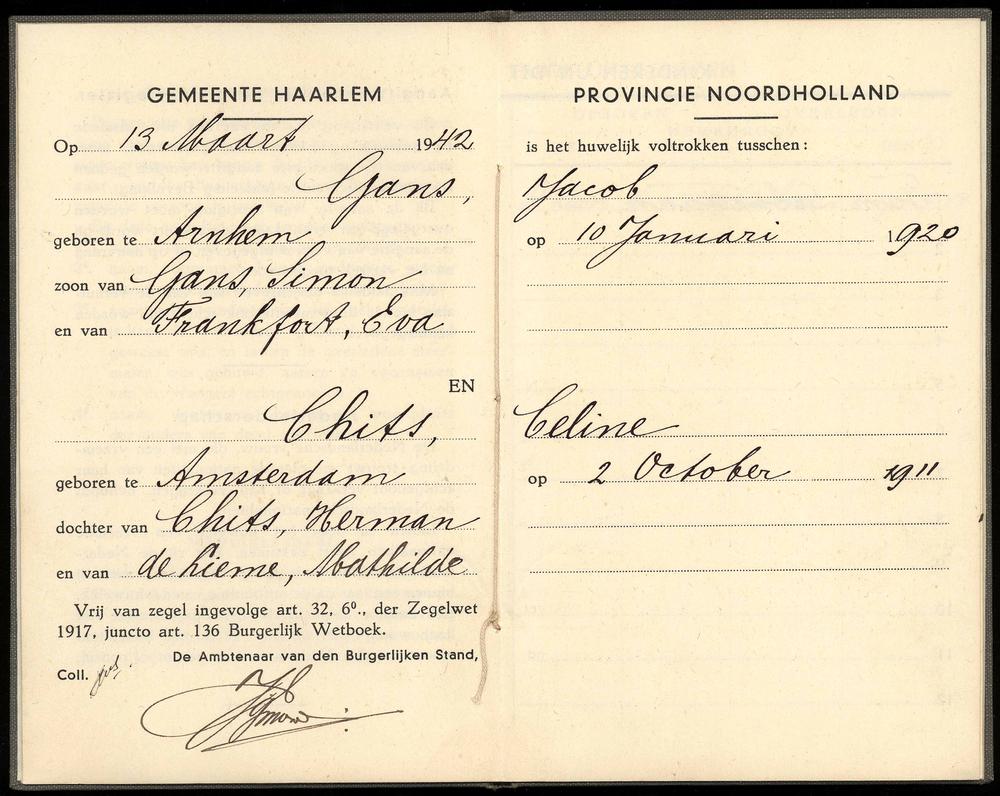 GEMEENTE HAARLEM
Op 13 Maart 1942
Gans,
geboren te Arnhem
zoon van Gans, Simon
en van Frankfort, Eva
EN
Chits,
geboren te Amsterdam
dochter van Chits, Herman
en van de Lieme, Mathilde
Vrij van zegel ingevolge art. 32, 6⁰., der Zegelwet
1917, juncto art. 136 Burgerlijk Wetboek.
De Ambtenaar van den Burgerlijken Stand,
Coll.
PROVINCIE NOORDHOLLAND
is het huwelijk voltrokken tusschen:
Jacob
op 10 Januari 1920
Celine
op 2 October 1911